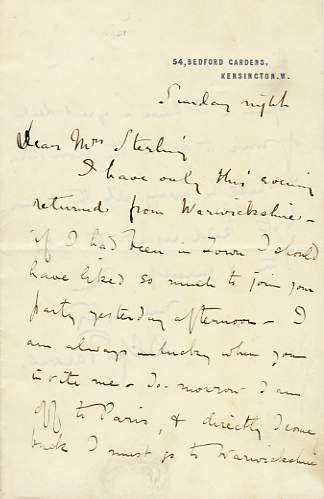 54, BEDFORD GARDENS,
KENSINGTON. W.
Sunday night
Dear Mrs Sterling
I have only this evening
returned from Warwickshire -
if I had been in Town I should
have liked so much to join your
party yesterday afternoon - I
am always unlucky when you
invite me - To-morrow I am
off to Paris, & directly I come
back I must go to Warwickshire